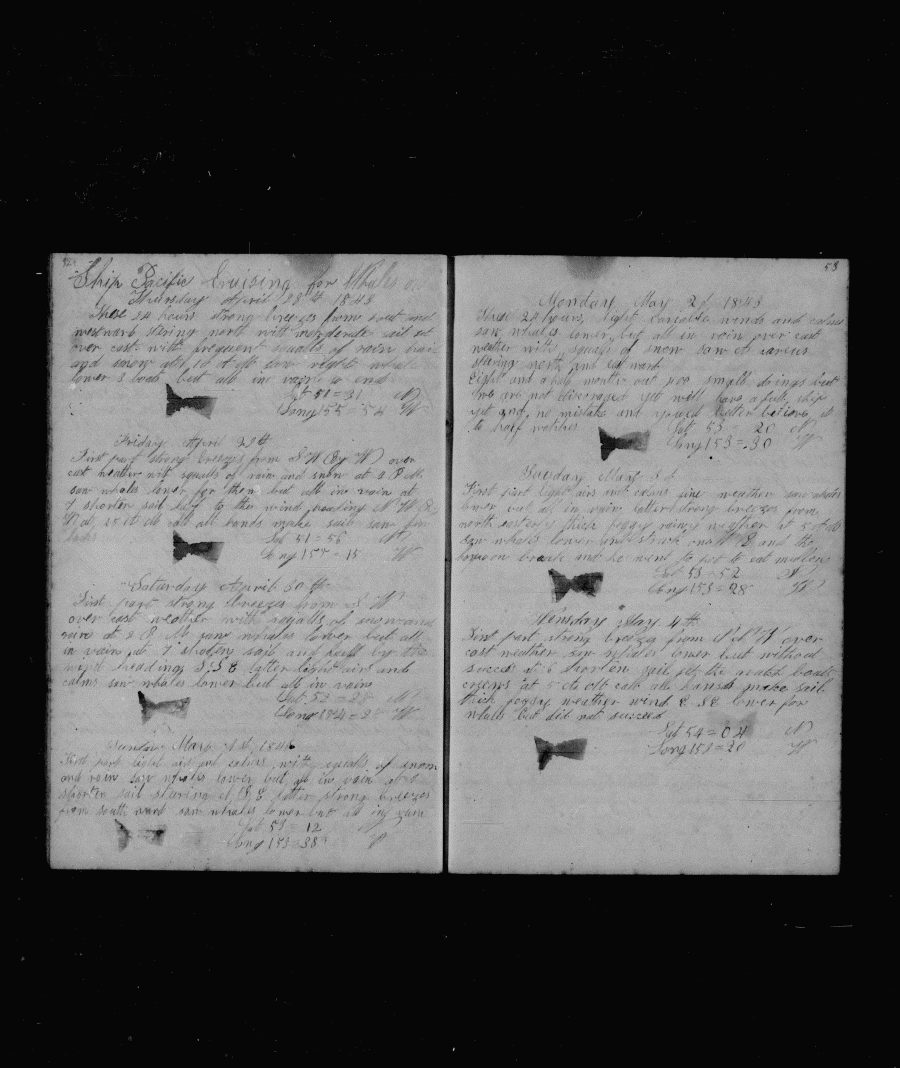 52
Ship Pacific Cruising for Whales on
Thursday April 28th 1843
These 24 hours strong breezes from south and
westward stering north with moderate sail set
over cast with frequent squalls of rain hail
and snow at 10 saw right whales
lower 3 boats but all in vain so ends
Lat 51=31 N
Long 155=54 W
Friday April 29th
First part strong breezes from S W (By W) over
cast weather wit squalls of rain and snow at 2 P M
saw whales lower for them but all in vain at
7 shorten sail luff to the wind heading N W
at call all hands make sail saw fin
backs
Lat 51=56 N
Long 157=15 W
Saturday April 30th
First part strong breezes from S W
over cast weather with squalls of snow and
rain at 2 P M saw whales lower but all
in vain at 7 shorten sail and luff by the
wind heading S S E latter light airs and
calms saw whales lower but all in vain
Lat 52 N
Long W
Sunday May 1st 1843
First part light airs and calms with squals of snow
and rain saw whales lower but all in vain at
shorten sail stearing latter strong breezes
from south ward saw whales lower but all in vain
Lat 53=12
Long 153=38
53
Monday May 2d 1843
These 24 hours light variable winds and calms
saw whales lower but all in vain over cast
weather with squals of snow saw
stering north and east ward
Eight and a half months out poo small doings but
we are not discouraged yet will have a full ship
yet and no mistake and you'd better believe it
to half watches
Lat 53=20 N
Long 153=30 W
Tuesday May 3d
First part light airs and calms fine weather saw whales
lower but all in vain latter strong breezes from
north easterly thick foggy rainy weather at 5
saw whales lower and struck one and the
broak and he went to pot to eat
Lat 53=52 N
Long 153=28 W
Wensday May 4th
First part strong breezes from over
cast weather saw whales lower but without
success at 6 shorten sail set the watch boats
crews at 5 call all hands make sail
thick foggy weather wind E SE lower for
whales but did not succeed
Lat 54=04 N
Long 153=20 W